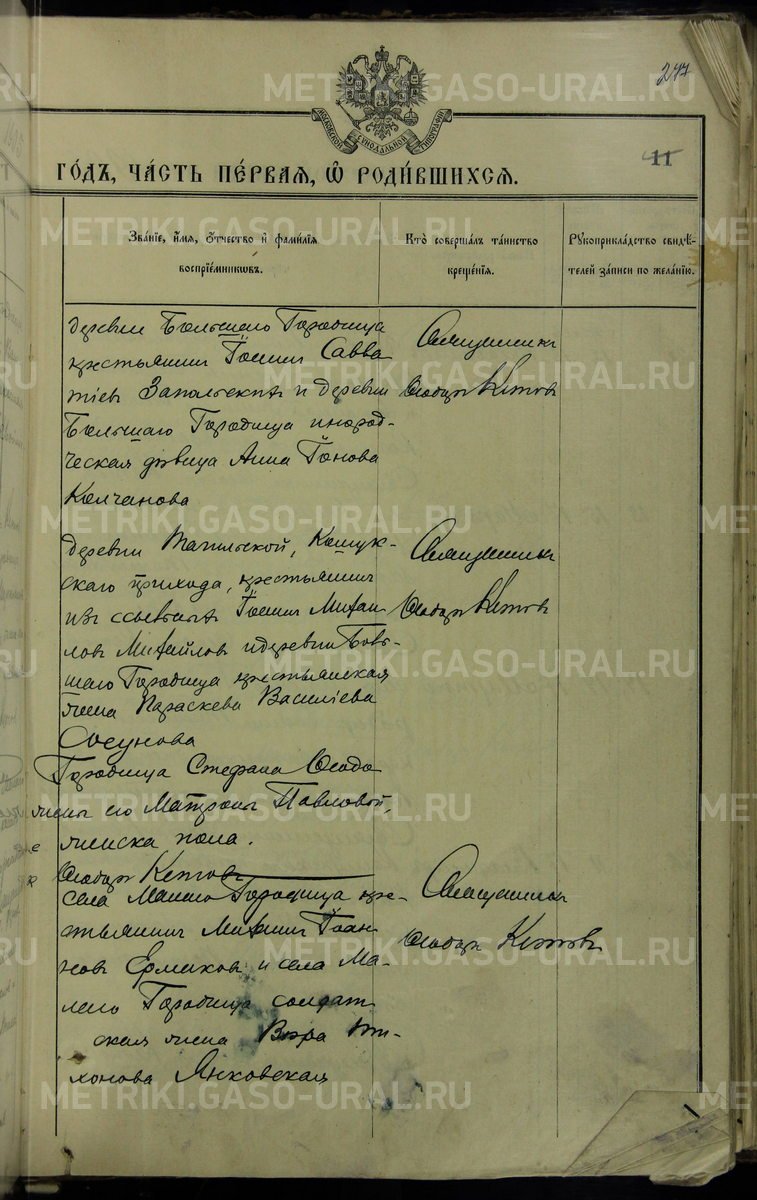 247
МОСКОВСКОЙ СУНОДАЛЬНОЙ ТИПОГРАФІИ
11
ГО́ДЪ, ЧА́СТЬ ПЕ́РВАЯ, Ѡ҆ РОДИ́ВШИХСЯ.
Зва́нїе, и҆́мя, ѻ҆́тчество и҆ фами́лїя воспрїе́мникѡвъ.
Кто̀ соверша́лъ та́инство креще́нїя.
Рꙋкоприкла́дство свидѣ́телей за́писи по жела́нїю.
деревни Большаго Городища
крестьянинъ Іоаннъ Савва
тіевъ Запольскихъ и деревни
Большаго Городища инород-
ческая дѣвица Анна Іонова
Колчанова
Священникъ
Кетовъ
деревни Тагильской, Кошук-
скаго прихода, крестьянинъ
изъ ссыльныхъ Іоаннъ Михаи
ловъ Михайловъ и деревни Боль-
шаго Городища крестьянская
жена Параскева Василіева
Сосунова
Священникъ
Кетовъ
Городища Стефана
жены его Матроны Павловой,
женска пола.
Кетовъ
села Малаго Городища кре-
стьянинъ Михаилъ Іоан
новъ Ермаковъ и села Ма-
лаго Городища солдат
ская жена Вѣра Ти-
хонова Янковская
Священникъ
Кетовъ
METRIKI.GASO-URAL.RU